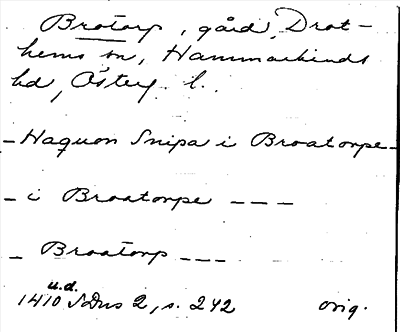 Brotorp, gård, Drot-
hems sn, Hammarkinds
hd, Österg. l.
– Haquon Snipa i Broatorpe –
– i Broatorpe – – –
– Broatorp – – –
u.d.
1410 SDns 2, s. 242 orig.